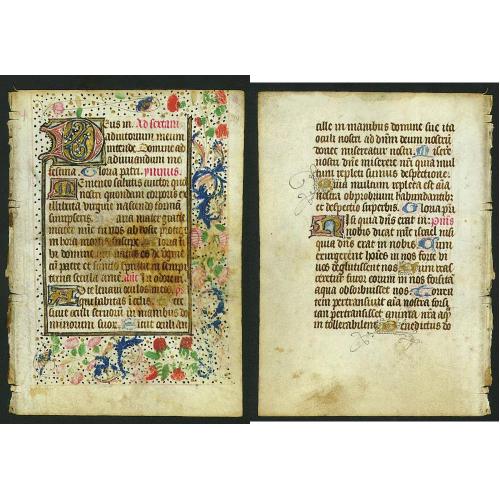 Deus in Ad sextam
adiutorium meum
intende Domine ad
adiuuandum me
festina Gloria patri ymnus
Memento salutis auctor
nostri quondam corporis ex
illibata virgine nascendo formā
sumpseris aria mater gratie
mater mie tu nos ab hoste protege
in hora mortis suscipe Gloria
domine natus es de virgine
cū patre et sancto spiritu in semp
iterna secula amē In odorem
Ad te leuaui oculos meos
qui habitas ī celis Ecce
sicut oculi seruorū in manibus do
minorum suor Sicut oculi an
cille in manibus domine sue ita
oculi nostri ad dnm deum nostrū
donec misereatur nostri Misere
nostri dne miserere nrī quia mul
tum repleti sumus despectione
Quia multum repleta est aīa
nostra obprobrium habundantibꝫ
et despectio superbis Gloria
Nisi quia dns erat in
nobis dicat nūc israel nisi
quia dns erat in nobis Cum
exurgerent hoīes in nos forte vi
uos deglutissent nos Cum iras
ceretur furor eorum in nos forsitā
aqua obsorbuisset nos Torren
tem pertransiuit aīa nostra forsi
tan pertransisset anima nrā aqā
in tollerabilem Benedictus do